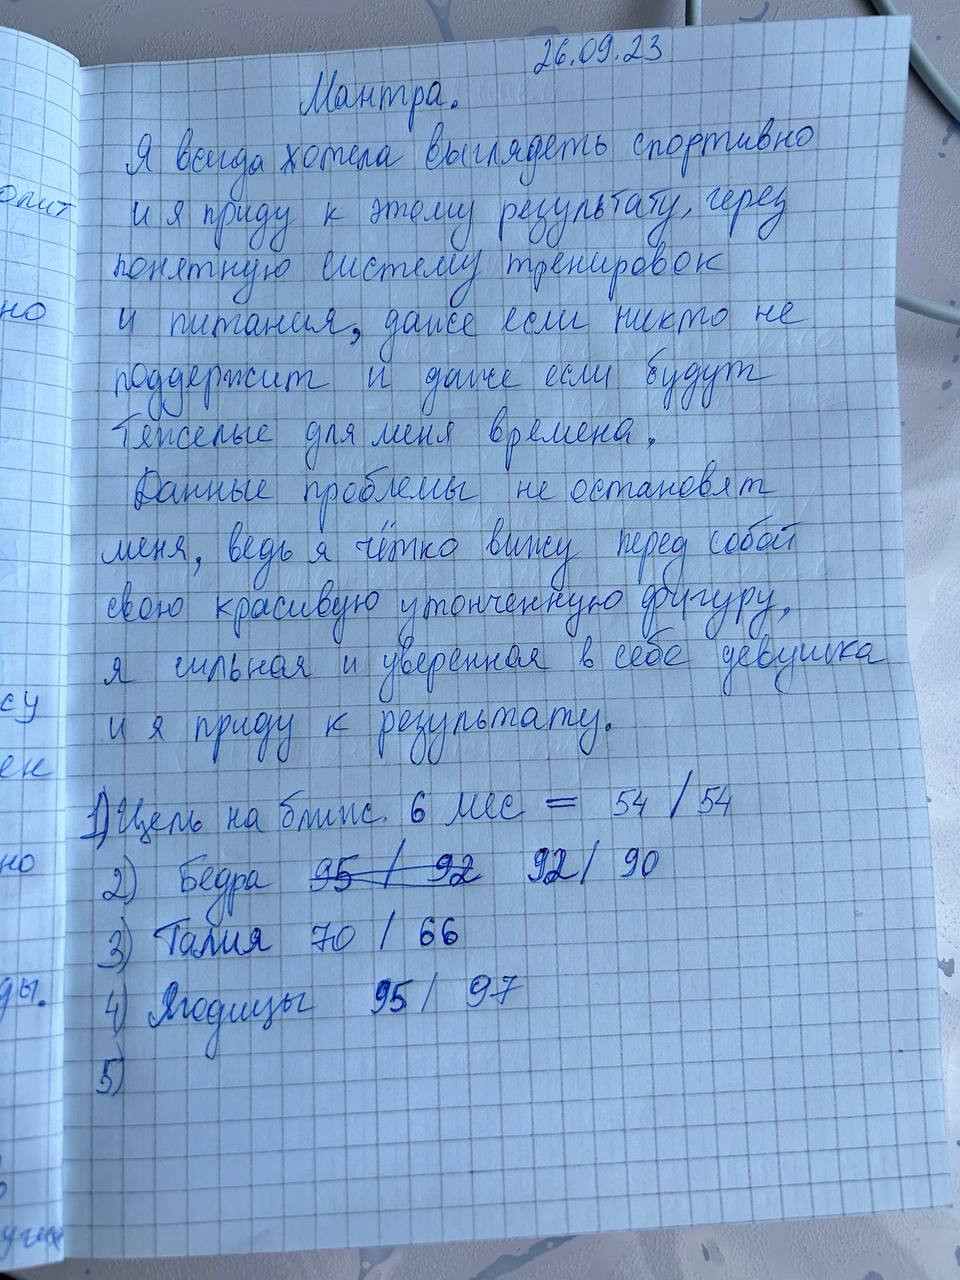 26.09.23
Мантра.
Я всегда хотела выглядеть спортивно
и я приду к этому результату, через
понятную систему тренировок
и питания, даже если никто не
поддержит и даже если будут
тяжелые для меня времена.
Данные проблемы не остановят
меня, ведь я чётко вижу перед собой
свою красивую утонченную фигуру,
я сильная и уверенная в себе девушка
и я приду к результату.
1) Цель на ближ. 6 мес = 54 / 54
2) Бедра 95 / 92 92 / 90
3) Талия 70 / 66
4) Ягодицы 95 / 97
5)
опит
но
су
ен
но
ды.